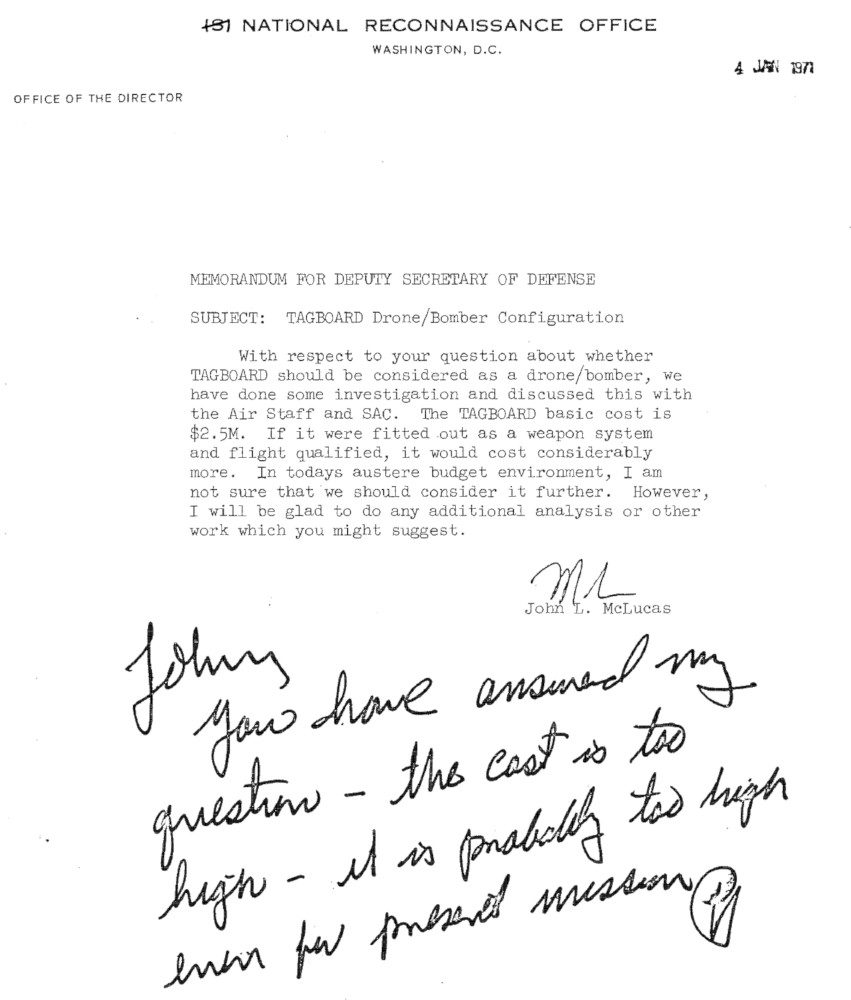 (S) NATIONAL RECONNAISSANCE OFFICE
WASHINGTON, D.C.
4 JAN 1971
OFFICE OF THE DIRECTOR
MEMORANDUM FOR DEPUTY SECRETARY OF DEFENSE
SUBJECT: TAGBOARD Drone/Bomber Configuration
With respect to your question about whether
TAGBOARD should be considered as a drone/bomber, we
have done some investigation and discussed this with
the Air Staff and SAC. The TAGBOARD basic cost is
$2.5M. If it were fitted out as a weapon system
and flight qualified, it would cost considerably
more. In todays austere budget environment, I am
not sure that we should consider it further. However,
I will be glad to do any additional analysis or other
work which you might suggest.
John L. McLucas
John
You have answered my
question - the cost is too
high - it is probably too high
even for present mission